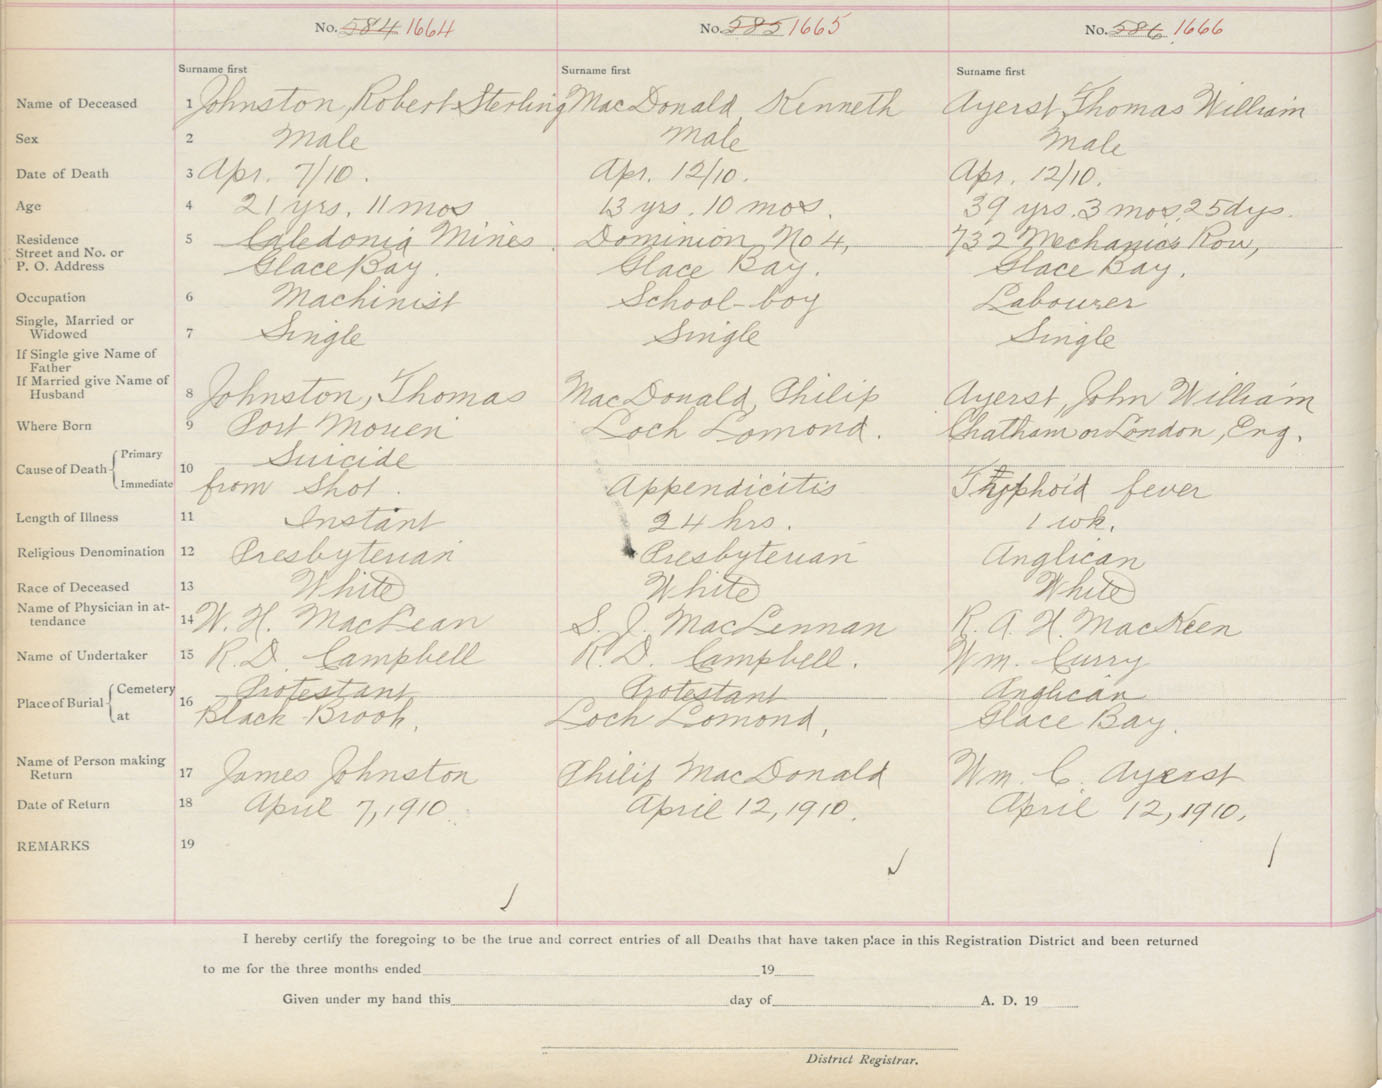 No. 584 1664 No. 585 1665 No. 586 1666
Surname first Surname first Surname first
Name of Deceased 1 Johnston, Robert Sterling MacDonald, Kenneth Ayerst, Thomas William
Sex 2 Male Male Male
Date of Death 3 Apr. 7/10. Apr. 12/10. Apr. 12/10.
Age 4 21 yrs. 11 mos 13 yrs. 10 mos. 39 yrs. 3 mos. 25 dys.
Residence 5 Caledonia Mines Dominion No 4, 732 Mechanics Row,
Street and No. or
P. O. Address Glace Bay. Glace Bay. Glace Bay.
Occupation 6 Machinist School-boy Labourer
Single, Married or
Widowed 7 Single Single Single
If Single give Name of
Father
If Married give Name of
Husband 8 Johnston, Thomas MacDonald, Philip Ayerst, John William
Where Born 9 Port Morien Loch Lomond. Chatham or London, Eng.
Cause of Death Primary 10 Suicide
Immediate from Shot. Appendicitis Typhoid fever
Length of Illness 11 Instant 24 hrs. 1 wk.
Religious Denomination 12 Presbyterian Presbyterian Anglican
Race of Deceased 13 White White White
Name of Physician in at-
tendance 14 W. H. MacLean S. J. MacLennan R. A. H. MacKeen
Name of Undertaker 15 R. D. Campbell R. D. Campbell. Wm. Curry
Place of Burial Cemetery 16 Protestant Protestant Anglican
at Black Brook, Loch Lomond, Glace Bay.
Name of Person making
Return 17 James Johnston Philip MacDonald Wm. C. Ayerst
Date of Return 18 April 7, 1910. April 12, 1910. April 12, 1910.
REMARKS 19
I hereby certify the foregoing to be the true and correct entries of all Deaths that have taken place in this Registration District and been returned
to me for the three months ended 19
Given under my hand this day of A. D. 19
District Registrar.